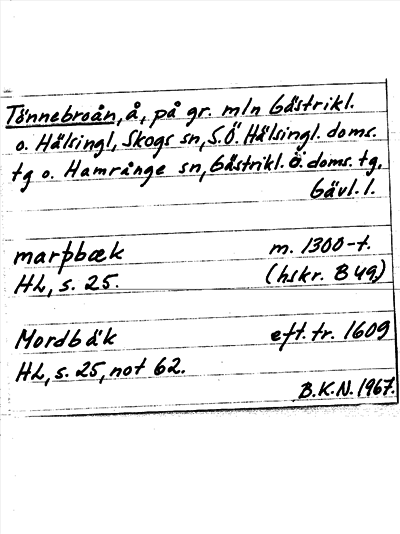 Tönnebroån, å, på gr. mln Gästrikl.
o. Hälsingl, Skogs sn, S.Ö. Hälsingl. doms.
tg o. Hamrånge sn, Gästrikl. Ö. doms. tg,
Gävl. l.
marþbæk m. 1300-t.
HL, s. 25. (hskr. B 49,)
Mordbäk eft. tr. 1609
HL, s. 25, not 62.
B.K.N. 1967.